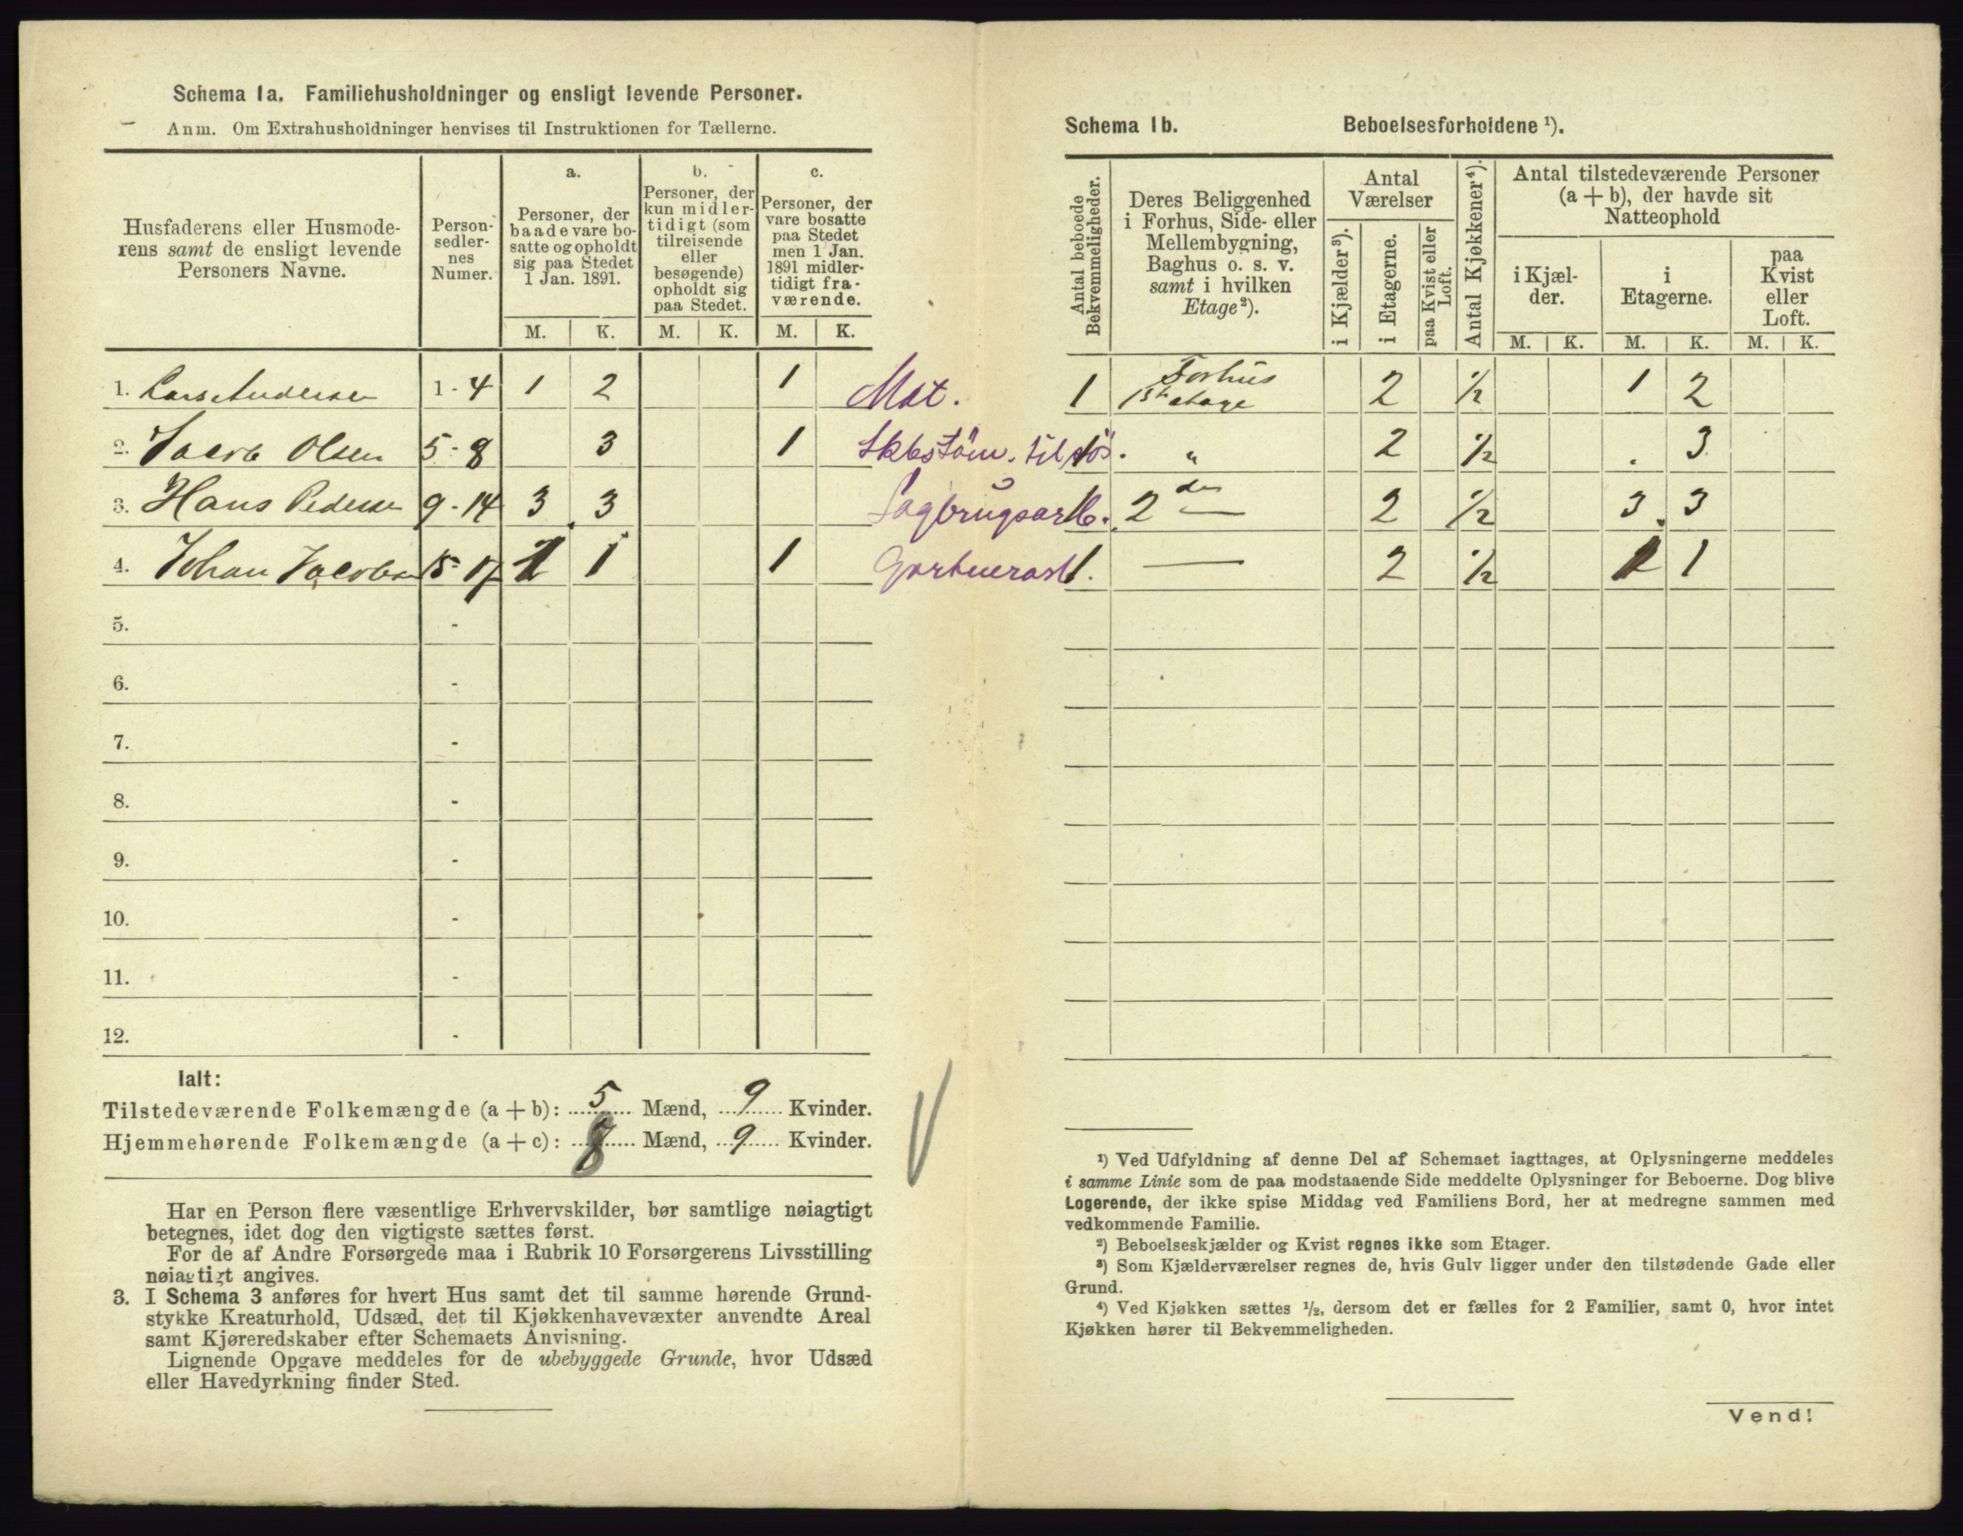 Schema 1a. Familiehusholdninger og ensligt levende Personer.
Anm. Om Extrahusholdninger henvises til Instruktionen for Tællerne.
Husfaderens eller Husmode-
rens samt de ensligt levende
Personers Navne.
Person-
sedler-
nes
Numer.
a.
Personer, der
baade vare bo-
satte og opholdt
sig paa Stedet
1 Jan. 1891.
b.
Personer, der
kun midler-
tidigt (som
tilreisende
eller
besøgende)
opholdt sig
paa Stedet.
c.
Personer, der
vare bosatte
paa Stedet
men 1 Jan.
1891 midler-
tidigt fra-
værende.
M. K. M. K. M. K.
1. Lars Andersen 1 - 4 1 2 1 Mat.
2. Jacob Olsen 5 - 8 3 1 til
3. Hans Pedersen 9 - 14 3 3 Sagbrugsarb.
4. Johan Jacobsen 15 - 17 1 1 1
5. -
6. -
7. -
8. -
9. -
10. -
11. -
12. -
Ialt:
Tilstedeværende Folkemængde (a + b): 5 Mænd, 9 Kvinder.
Hjemmehørende Folkemængde (a + c): 8 Mænd, 9 Kvinder.
Har en Person flere væsentlige Erhvervskilder, bør samtlige nøiagtigt
betegnes, idet dog den vigtigste sættes først.
For de af Andre Forsørgede maa i Rubrik 10 Forsørgerens Livsstilling
nøiagtigt angives.
3. I Schema 3 anføres for hvert Hus samt det til samme hørende Grund-
stykke Kreaturhold, Udsæd, det til Kjøkkenhavevæxter anvendte Areal
samt Kjøreredskaber efter Schemaets Anvisning.
Lignende Opgave meddeles for de ubebyggede Grunde, hvor Udsæd
eller Havedyrkning finder Sted.
Schema 1b. Beboelsesforholdene ¹).
Antal beboede
Bekvemmeligheder.
Deres Beliggenhed
i Forhus, Side- eller
Mellembygning,
Baghus o. s. v.
samt i hvilken
Etage²).
Antal
Værelser
i Kjælder³).
i Etagerne.
paa Kvist eller
Loft.
Antal Kjøkkener⁴).
Antal tilstedeværende Personer
(a + b), der havde sit
Natteophold
i Kjæl-
der.
i
Etagerne.
paa
Kvist
eller
Loft.
M. K. M. K. M. K.
1 Forhus
1ste etage 2 ½ 1 2
1 „ 2 ½ . 3
1 2den — 2 ½ 3 3
1 — 2 ½ 1 1
¹) Ved Udfyldning af denne Del af Schemaet iagttages, at Oplysningerne meddeles
i samme Linie som de paa modstaaende Side meddelte Oplysninger for Beboerne. Dog blive
Logerende, der ikke spise Middag ved Familiens Bord, her at medregne sammen med
vedkommende Familie.
²) Beboelseskjælder og Kvist regnes ikke som Etager.
³) Som Kjælderværelser regnes de, hvis Gulv ligger under den tilstødende Gade eller
Grund.
⁴) Ved Kjøkken sættes ½, dersom det er fælles for 2 Familier, samt 0, hvor intet
Kjøkken hører til Bekvemmeligheden.
Vend!